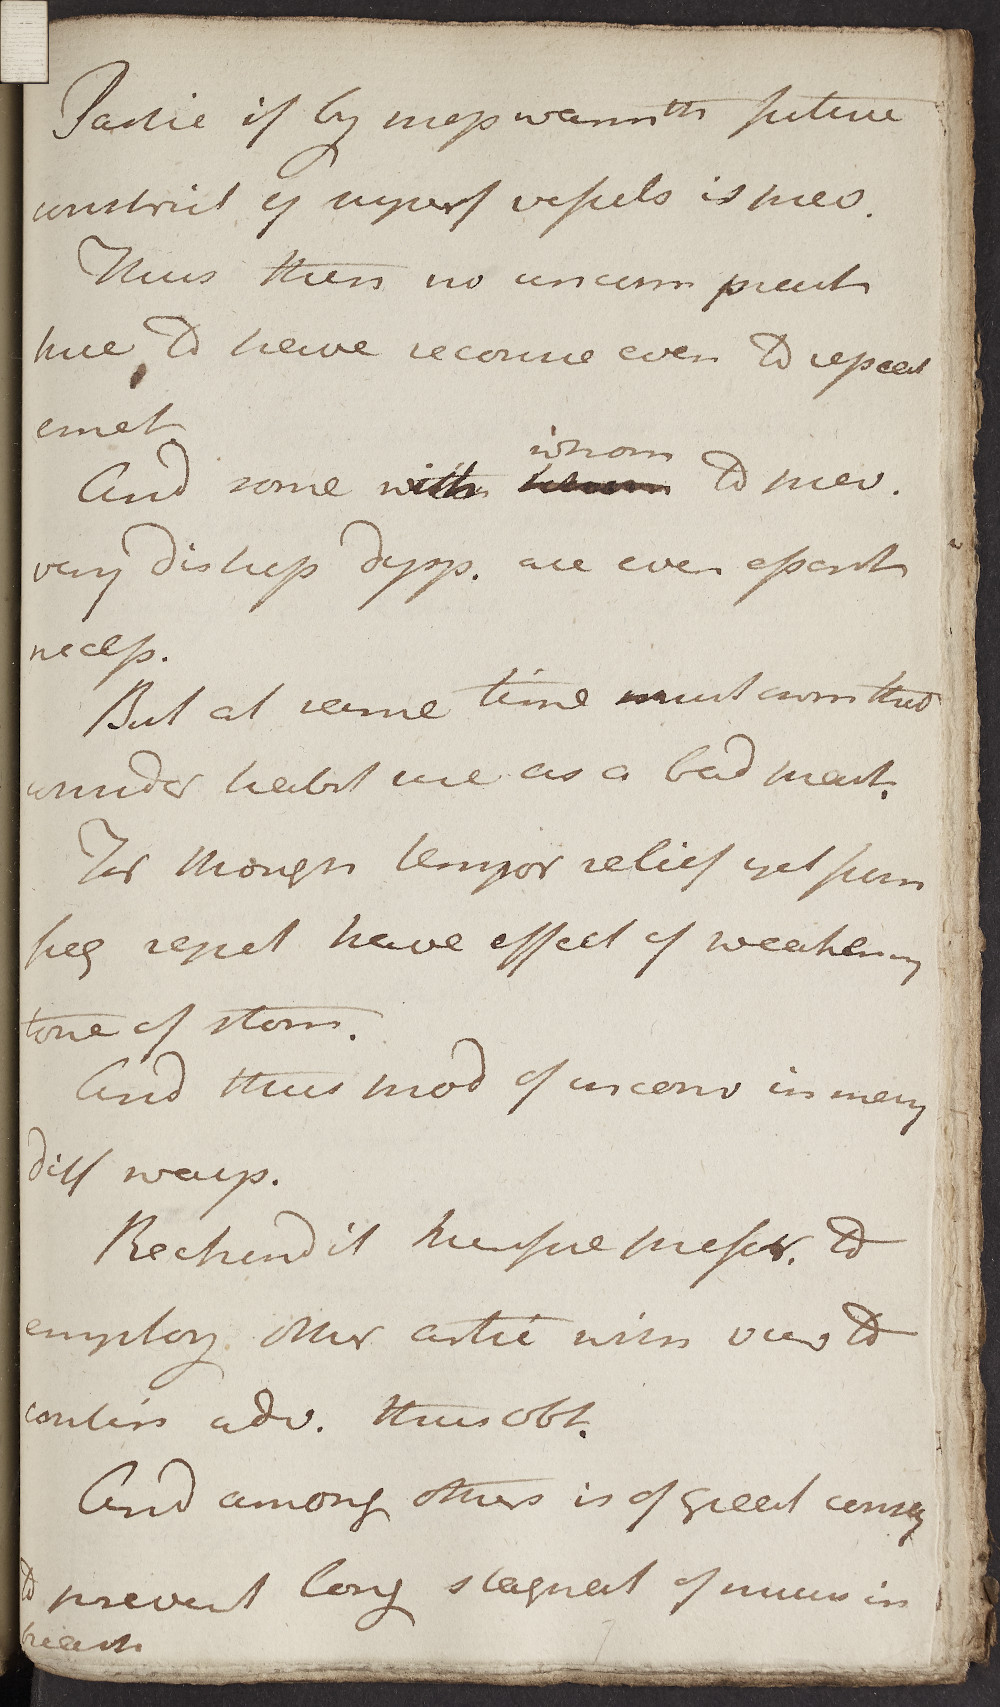 Partic if by mep warmth future
constrict of superf vessels is prev.
Thus then no uncom pract
here to have recourse even to repeat
emet
And some with whom to prev.
very distress dysp. are even apart
necess.
But at same time must own that
consider habit use as a bad pract.
For though tempor relief yet from
freq repet have effect of weakening
tone of stom.
And thus mod of uncom in many
diff ways.
Rechend it therefore prefer. to
employ other artic with view to
contin adv. thus obt.
And among others is of great conseq
to prevent long stagnat of mucus in